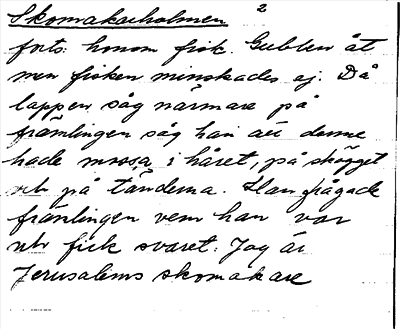 Skomakareholmen 2
forts: honom fisk. Gubben åt
men fisken minskades ej. Då
lappen såg närmare på
främlingen såg han att denne
hade mossa i håret, på skägget
och på tänderna. Han frågade
främlingen vem han var
och fick svaret: Jag är
Jerusalems skomakare